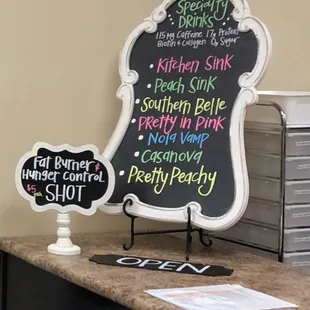 Specialty
Drinks
115 mg Caffeine 17g Protein
Biotin & Collagen 0g Sugar
• Kitchen Sink
• Peach Sink
• Southern Belle
• Pretty in Pink
• Nola Vamp
• Casanova
• Pretty Peachy
Fat Burner &
Hunger Control
$5 SHOT
OPEN